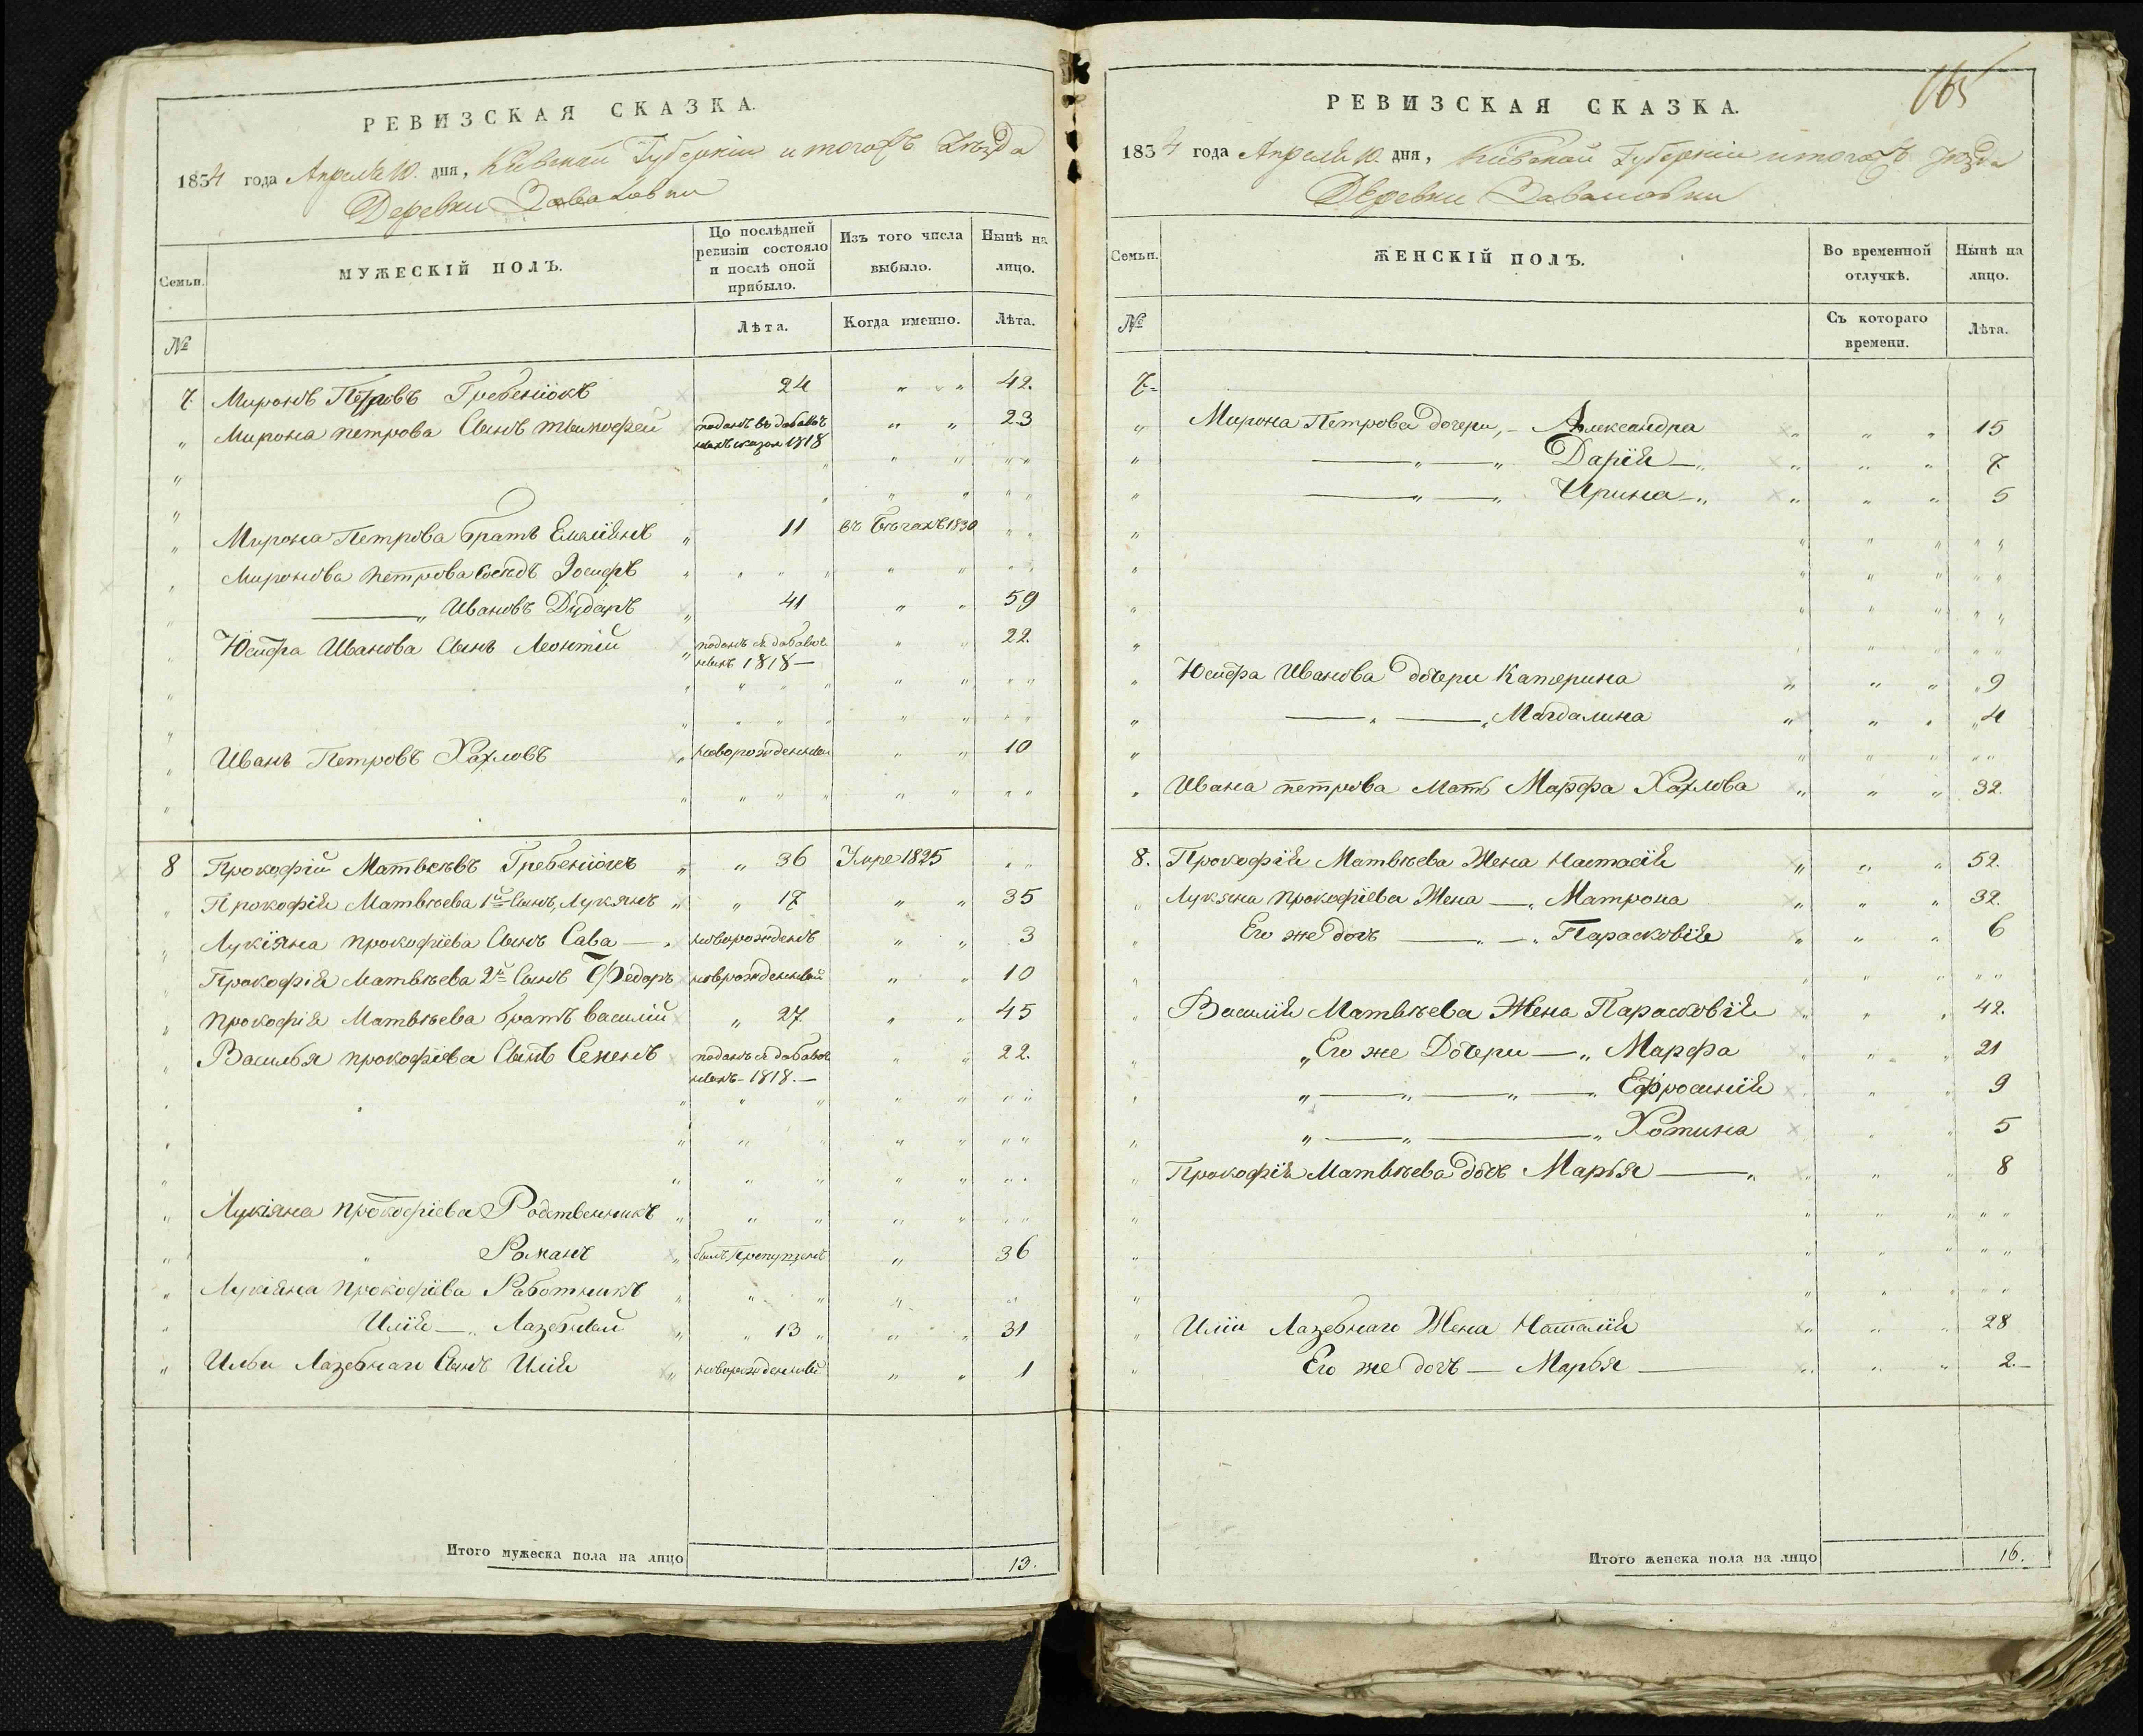 РЕВИЗСКАЯ СКАЗКА.
1834 года Апреля 10. дня, Кіевской Губерніи и тогожъ Уѣзда
Деревни Заваловки
Семьи.
МУЖЕСКІЙ ПОЛЪ.
По послѣдней ревизіи состояло и послѣ оной прибыло.
Изъ того числа выбыло.
Нынѣ на лицо.
№
Лѣта.
Когда именно.
Лѣта.
7. Миронъ Петровъ Гребенюкъ 24 " " " 42.
" Мирона петрова Сынъ тимофей поданъ въ добавоч " " 23
ныхъ сказкахъ 1818
" " " " " "
" " " " " "
" Мирона Петрова братъ Емеліянъ " 11 въ бѣгахъ 1830 " "
" Миронова петрова Сосѣдъ Іосифъ " " " " " " " "
" — " Ивановъ Дударъ " 41 " " 59
" Юсифа Иванова Сынъ Леонтій " поданъ въ добавоч " " 22.
ныхъ 1818 —
" " " " " " " " "
" " " " " " " " "
" Иванъ Петровъ Хохловъ " новорожденный " " 10
" " " " " " " " "
8 Прокофій Матвѣевъ Гребенюкъ " " 36 Умре 1825 " "
" Прокофія Матвѣева 1й Сынъ, Лукянъ " " 17 " " 35
" Лукіяна прокофіева Сынъ Сава — " новорожденъ " " 3
" Прокофія Матвѣева 2й Сынъ Федоръ новорожденный " " 10
" Прокофія Матвѣева братъ василій " 27. " " 45
" Василья прокофіева Сынъ Семенъ поданъ въ добавоч " " 22.
ныхъ - 1818. —
" " " " " " " "
" " " " " " " "
" " " " " " " "
" Лукіяна прокофіева Родственникъ " " " " " " "
" " Романъ " былъ пропущенъ " 36
" Лукіяна Прокофіева Работникъ " " " " "
" Илія — " Лазебный " " 13 " " " 31
" Ильи Лазебнаго Сынъ Илія " новорожденный " " 1
Итого мужеска пола на лицо 13.
165
РЕВИЗСКАЯ СКАЗКА.
1834 года Апреля 10. дня, Кіевской Губерніи и тогожъ Уѣзда
Деревни Заваловки
Семьи.
ЖЕНСКІЙ ПОЛЪ.
Во временной отлучкѣ.
Нынѣ на лицо.
№
Съ котораго времени.
Лѣта.
7-
" Мирона Петрова дочери, - Александра " " " 15
" — " — " Дарія — " " " " 7.
" — " — " Ирина — " " " " 5
" " " " " "
" " " " " "
" " " " " "
" " " " " "
" Юсифа Иванова дочери Катерина " " " 9
" — " — " Магдалина " " " 4
" " " " " "
" Ивана петрова Мать Марфа Хохлова " " " 32.
8. Прокофія Матвѣева Жена Настасія " " " 52.
" Лукяна прокофіева Жена — " Матрона " " " 32.
" Его же дочь — " — " Парасковія " " " 6
" " " " "
" Василія Матвѣева Жена Парасковія " " " 42.
" " Его же Дочери — " Марфа " " " 21
" " — " — " — " Ефросинія " " " 9
" " — " — " Хотина " " 5
" Прокофія Матвѣева дочь Марья — " " " " 8
" " " " " "
" " " " " "
" " " " " "
" Иліи Лазебнаго Жена Наталія " " " 28
" Его же дочь — Марья — " " " 2. —
Итого женска пола на лицо 16.